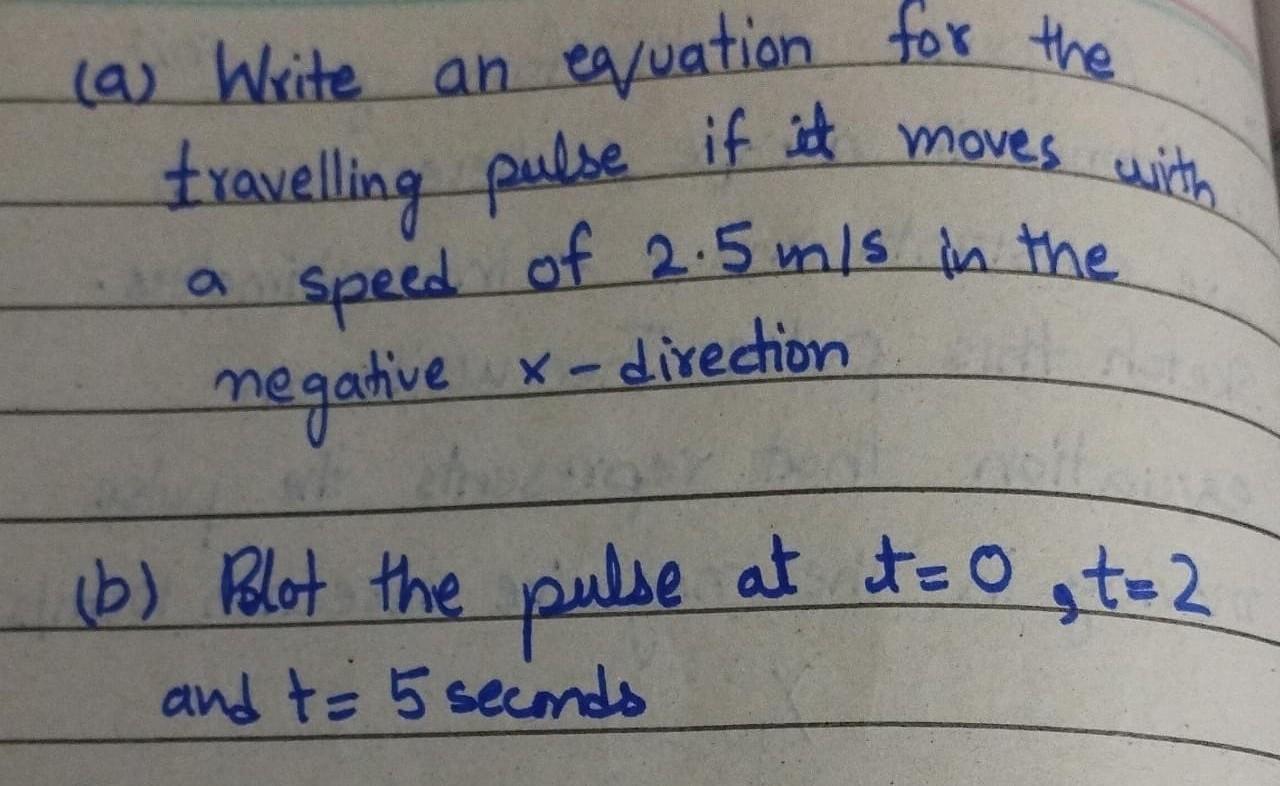 (a) Write an equation for the
travelling pulse if it moves with
a speed of 2.5 m/s in the
negative x-direction
(b) Plot the pulse at t=0, t=2
and t=5 seconds